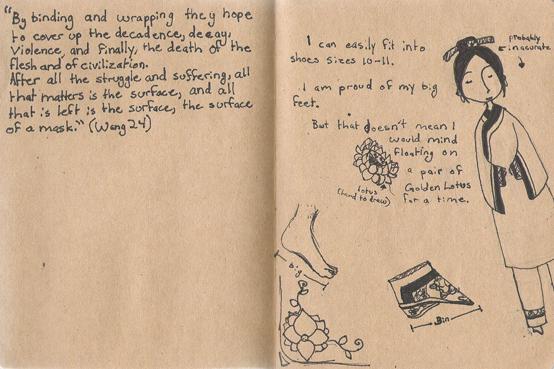 "By binding and wrapping they hope
to cover up the decadence, decay,
violence, and finally, the death of the
flesh and of civilization.
After all the struggle and suffering, all
that matters is the surface, and all
that is left is the surface, the surface
of a mask." (Wang 24)
I can easily fit into
shoes sizes 10-11.
I am proud of my big
feet.
But that doesn't mean I
would mind
floating on
a pair of
Golden Lotus
for a time.
probably
inacurate
lotus
(hard to draw)
big